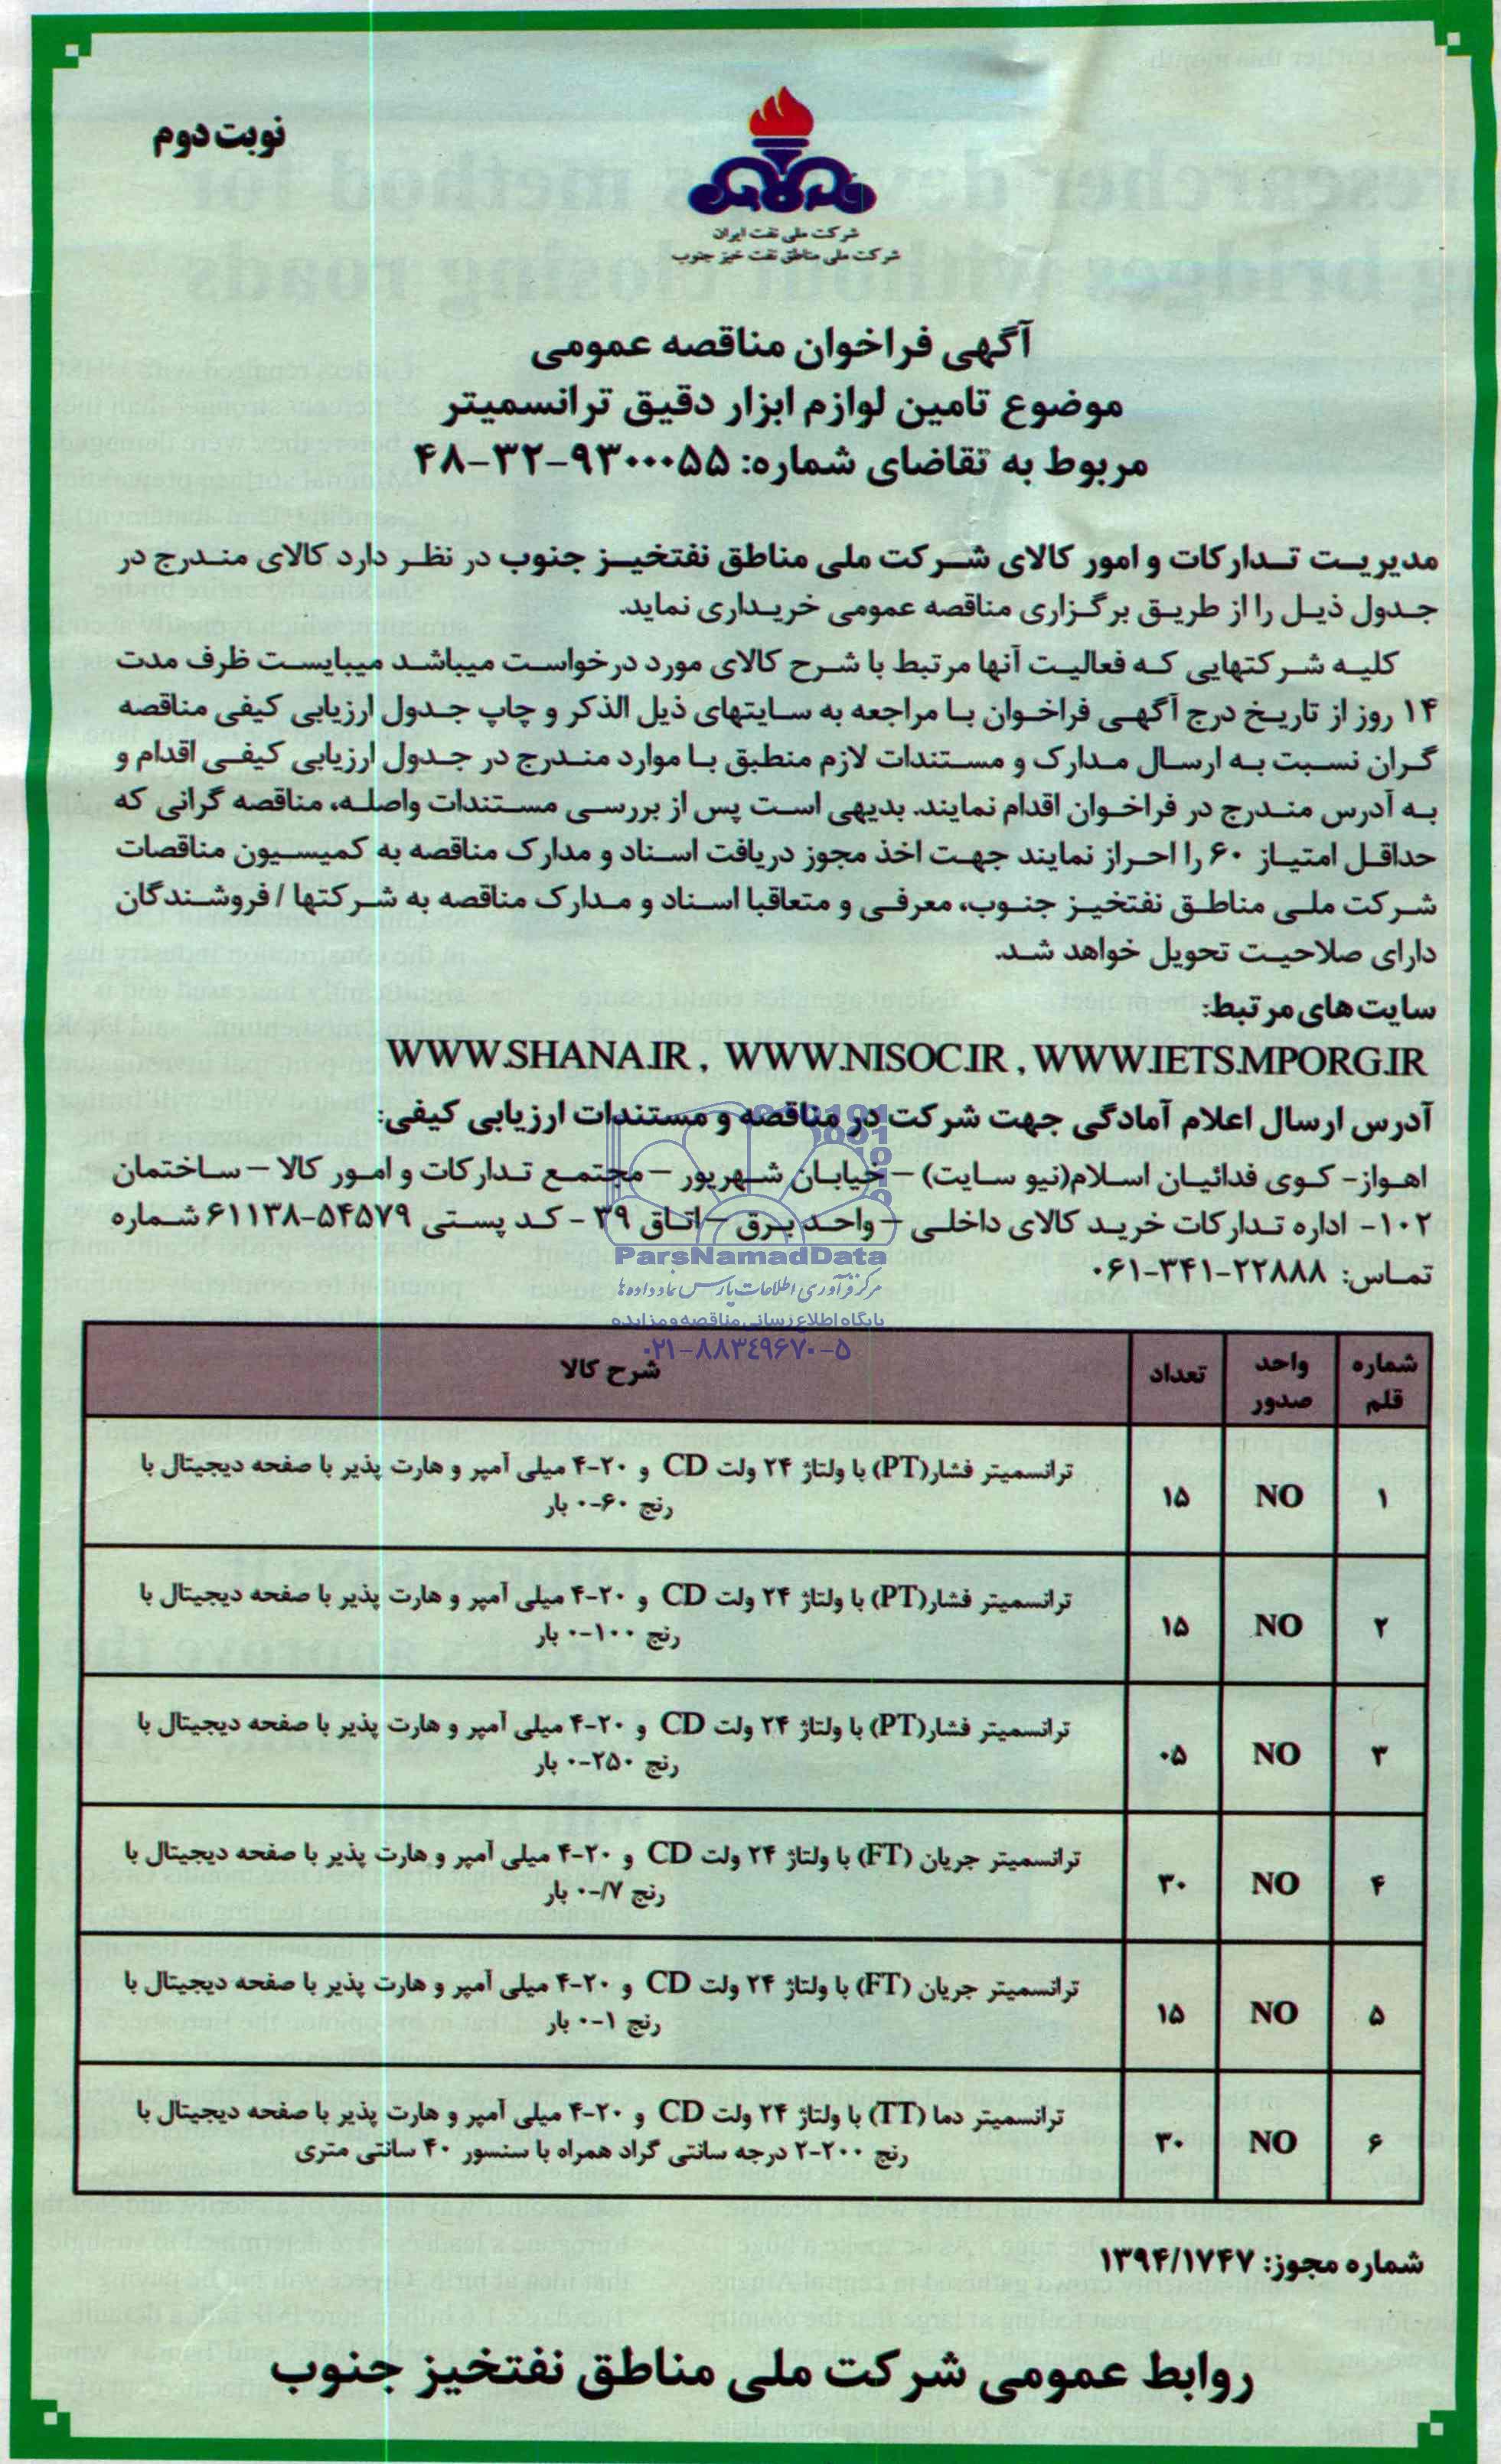 نوبت دوم
شرکت ملی نفت ایران
شرکت ملی مناطق نفت خیز جنوب
آگهی فراخوان مناقصه عمومی
موضوع تامین لوازم ابزار دقیق ترانسمیتر
مربوط به تقاضای شماره: ۹۳۰۰۰۵۵-۳۲-۴۸
مدیریت تدارکات و امور کالای شرکت ملی مناطق نفتخیز جنوب در نظر دارد کالای مندرج در
جدول ذیل را از طریق برگزاری مناقصه عمومی خریداری نماید.
کلیه شرکتهایی که فعالیت آنها مرتبط با شرح کالای مورد درخواست میباشد میبایست ظرف مدت
۱۴ روز از تاریخ درج آگهی فراخوان با مراجعه به سایتهای ذیل الذکر و چاپ جدول ارزیابی کیفی مناقصه
گران نسبت به ارسال مدارک و مستندات لازم منطبق با موارد مندرج در جدول ارزیابی کیفی اقدام و
به آدرس مندرج در فراخوان اقدام نمایند. بدیهی است پس از بررسی مستندات واصله، مناقصه گرانی که
حداقل امتیاز ۶۰ را احراز نمایند جهت اخذ مجوز دریافت اسناد و مدارک مناقصه به کمیسیون مناقصات
شرکت ملی مناطق نفتخیز جنوب، معرفی و متعاقبا اسناد و مدارک مناقصه به شرکتها / فروشندگان
دارای صلاحیت تحویل خواهد شد.
سایت های مرتبط:
WWW.SHANA.IR , WWW.NISOC.IR , WWW.IETS.MPORG.IR
آدرس ارسال اعلام آمادگی جهت شرکت در مناقصه و مستندات ارزیابی کیفی:
اهواز- کوی فدائیان اسلام(نیو سایت) – خیابان شهریور – مجتمع تدارکات و امور کالا – ساختمان
۱۰۲- اداره تدارکات خرید کالای داخلی – واحد برق – اتاق ۳۹ - کد پستی ۵۴۵۷۹-۶۱۱۳۸ شماره
تماس: ۲۲۸۸۸-۳۴۱-۰۶۱
ParsNamadData
مرکز فرآوری اطلاعات پارس نماد داده ها
پایگاه اطلاع رسانی مناقصه و مزایده
۰۲۱-۸۸۳۴۹۶۷۰-۵
شماره قلم واحد صدور تعداد شرح کالا
۱ NO ۱۵ ترانسمیتر فشار(PT) با ولتاژ ۲۴ ولت CD و ۲۰-۴ میلی آمپر و هارت پذیر با صفحه دیجیتال با
رنج ۶۰-۰ بار
۲ NO ۱۵ ترانسمیتر فشار(PT) با ولتاژ ۲۴ ولت CD و ۲۰-۴ میلی آمپر و هارت پذیر با صفحه دیجیتال با
رنج ۱۰۰-۰ بار
۳ NO ۰۵ ترانسمیتر فشار(PT) با ولتاژ ۲۴ ولت CD و ۲۰-۴ میلی آمپر و هارت پذیر با صفحه دیجیتال با
رنج ۲۵۰-۰ بار
۴ NO ۳۰ ترانسمیتر جریان (FT) با ولتاژ ۲۴ ولت CD و ۲۰-۴ میلی آمپر و هارت پذیر با صفحه دیجیتال با
رنج ۰-/۷ بار
۵ NO ۱۵ ترانسمیتر جریان (FT) با ولتاژ ۲۴ ولت CD و ۲۰-۴ میلی آمپر و هارت پذیر با صفحه دیجیتال با
رنج ۱-۰ بار
۶ NO ۳۰ ترانسمیتر دما (TT) با ولتاژ ۲۴ ولت CD و ۲۰-۴ میلی آمپر و هارت پذیر با صفحه دیجیتال با
رنج ۲۰۰-۲ درجه سانتی گراد همراه با سنسور ۴۰ سانتی متری
شماره مجوز: ۱۳۹۴/۱۷۴۷
روابط عمومی شرکت ملی مناطق نفتخیز جنوب